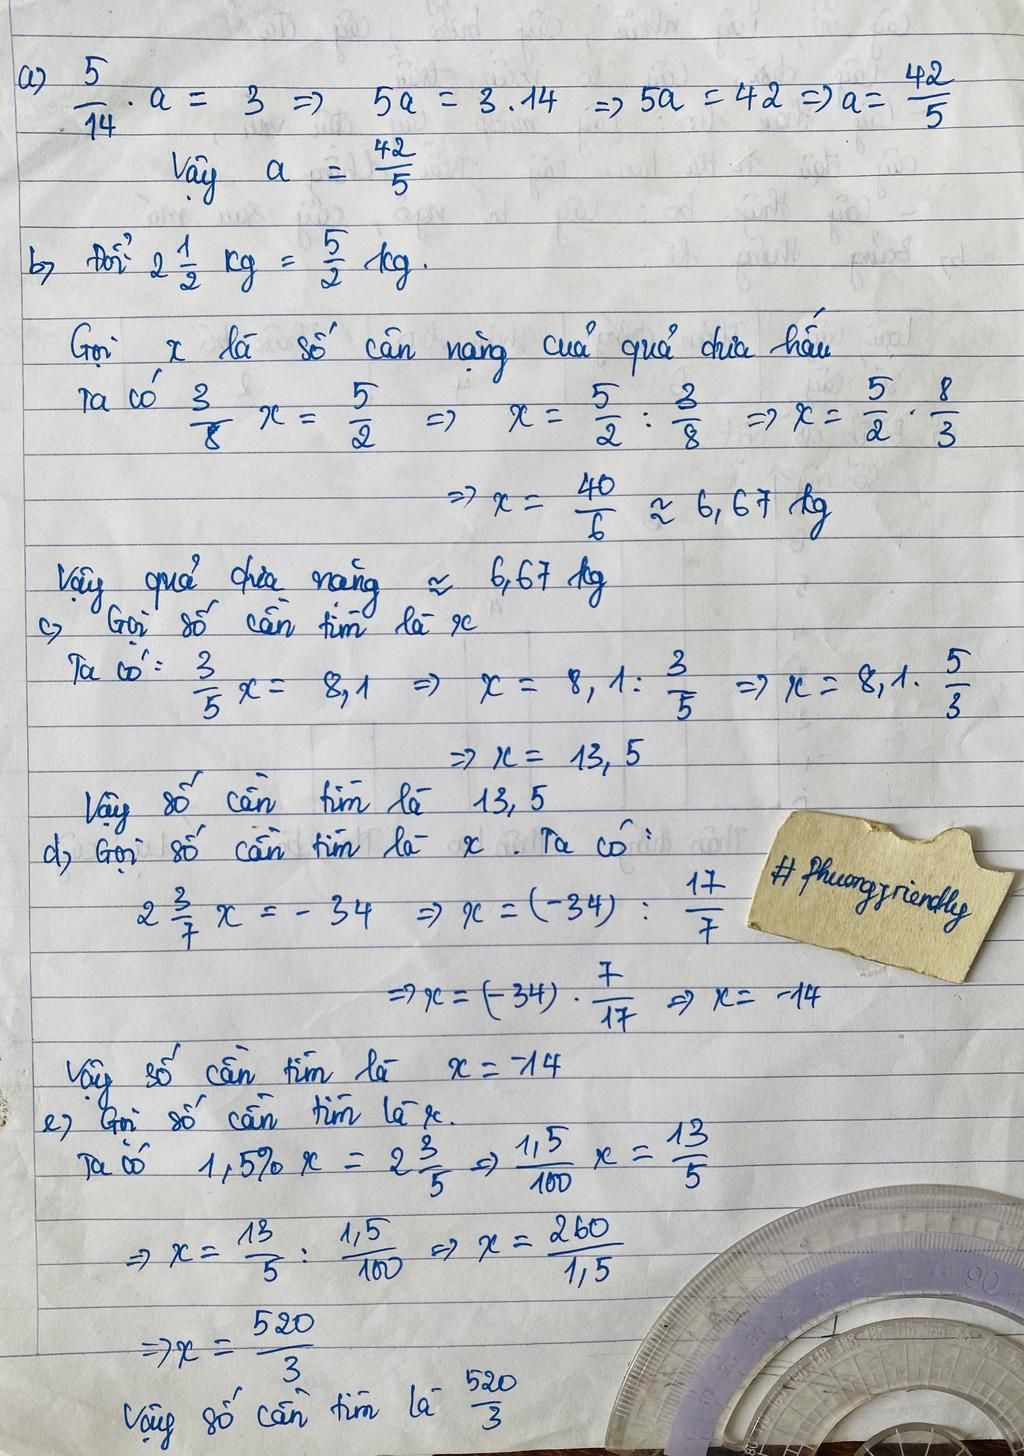 a) 5/14 . a = 3 => 5a = 3.14 => 5a = 42 => a = 42/5
Vậy a = 42/5
b) Đổi 2 1/2 kg = 5/2 kg.
Gọi x là số cân nặng của quả dưa hấu
Ta có 3/8 x = 5/2 => x = 5/2 : 3/8 => x = 5/2 . 8/3
=> x = 40/6 ≈ 6,67 kg
Vậy quả dưa nặng ≈ 6,67 kg
c) Gọi số cần tìm là x
Ta có: 3/5 x = 8,1 => x = 8,1 : 3/5 => x = 8,1 . 5/3
=> x = 13,5
Vậy số cần tìm là 13,5
d) Gọi số cần tìm là x . Ta có :
2 3/7 x = - 34 => x = (-34) : 17/7
# Phuongfriendly
=> x = (-34) . 7/17 => x = -14
Vậy số cần tìm là x = -14
e) Gọi số cần tìm là x.
Ta có 1,5% x = 2 3/5 => 1,5/100 x = 13/5
=> x = 13/5 : 1,5/100 => x = 260/1,5
=> x = 520/3
Vậy số cần tìm là 520/3
90